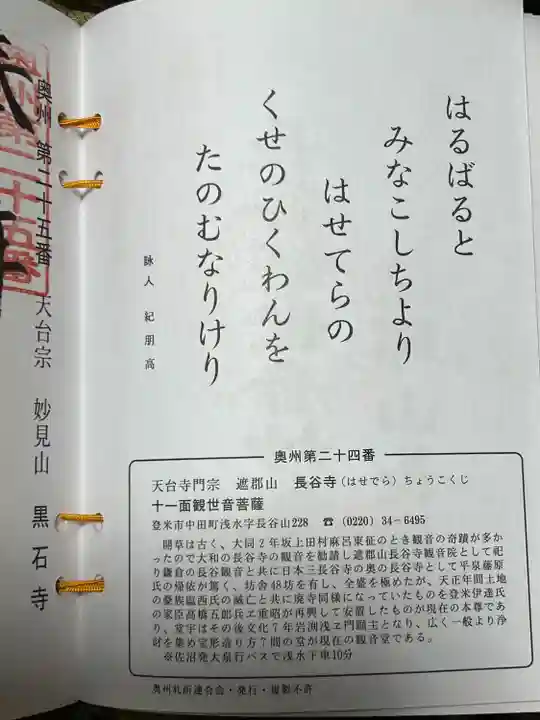 はるばると
みなこしちより
はせてらの
くせのひくわんを
たのむなりけり
詠人 紀朋高
奥州第二十四番
天台寺門宗 遮那山 長谷寺(はせでら)ちょうこくじ
十一面観世音菩薩
登米市中田町浅水字長谷山228 ☎(0220)34-6495
開草は古く、大同2年坂上田村麻呂東征のとき観音の奇蹟が多か
ったので大和の長谷寺の観音を勧請し遮那山長谷寺観音院として祀
り鎌倉の長谷観音と共に日本三長谷寺の奥の長谷寺として平泉藤原
氏の帰依が篤く、坊舎48坊を有し、全盛を極めたが、天正年間土地
の豪族臨西氏の滅亡と共に廃寺同様になっていたものを登米伊達氏
の家臣高橋五郎兵ヱ重昭が再興して安置したものが現在の本尊であ
り、堂宇はその後文化7年岩渕浅ヱ門願主となり、広く一般より浄
財を集め宝形造り方7間の堂が現在の観音堂である。
※佐沼発大泉行バスで浅水下車10分
奥州札所連合会・発行・複製不許
奥州 第二十五番 天台宗 妙見山 黒石寺